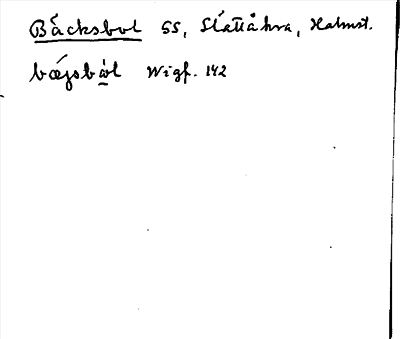 Bäcksbol SS, Slättåkra, Halmst.
bǽgsbòl Wigf. 142